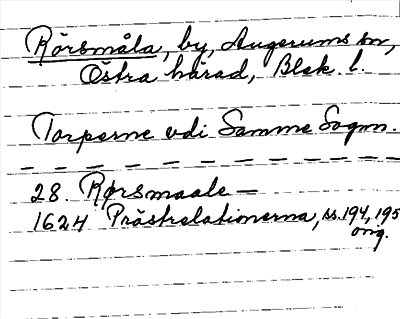 Rörsmåla, by, Augerums sn,
Östra härad, Blek. l.
Torperne vdi Samme Sogm.
28. Rørsmaale —
1624 Prästrelationerna, ss. 194, 195
orig.